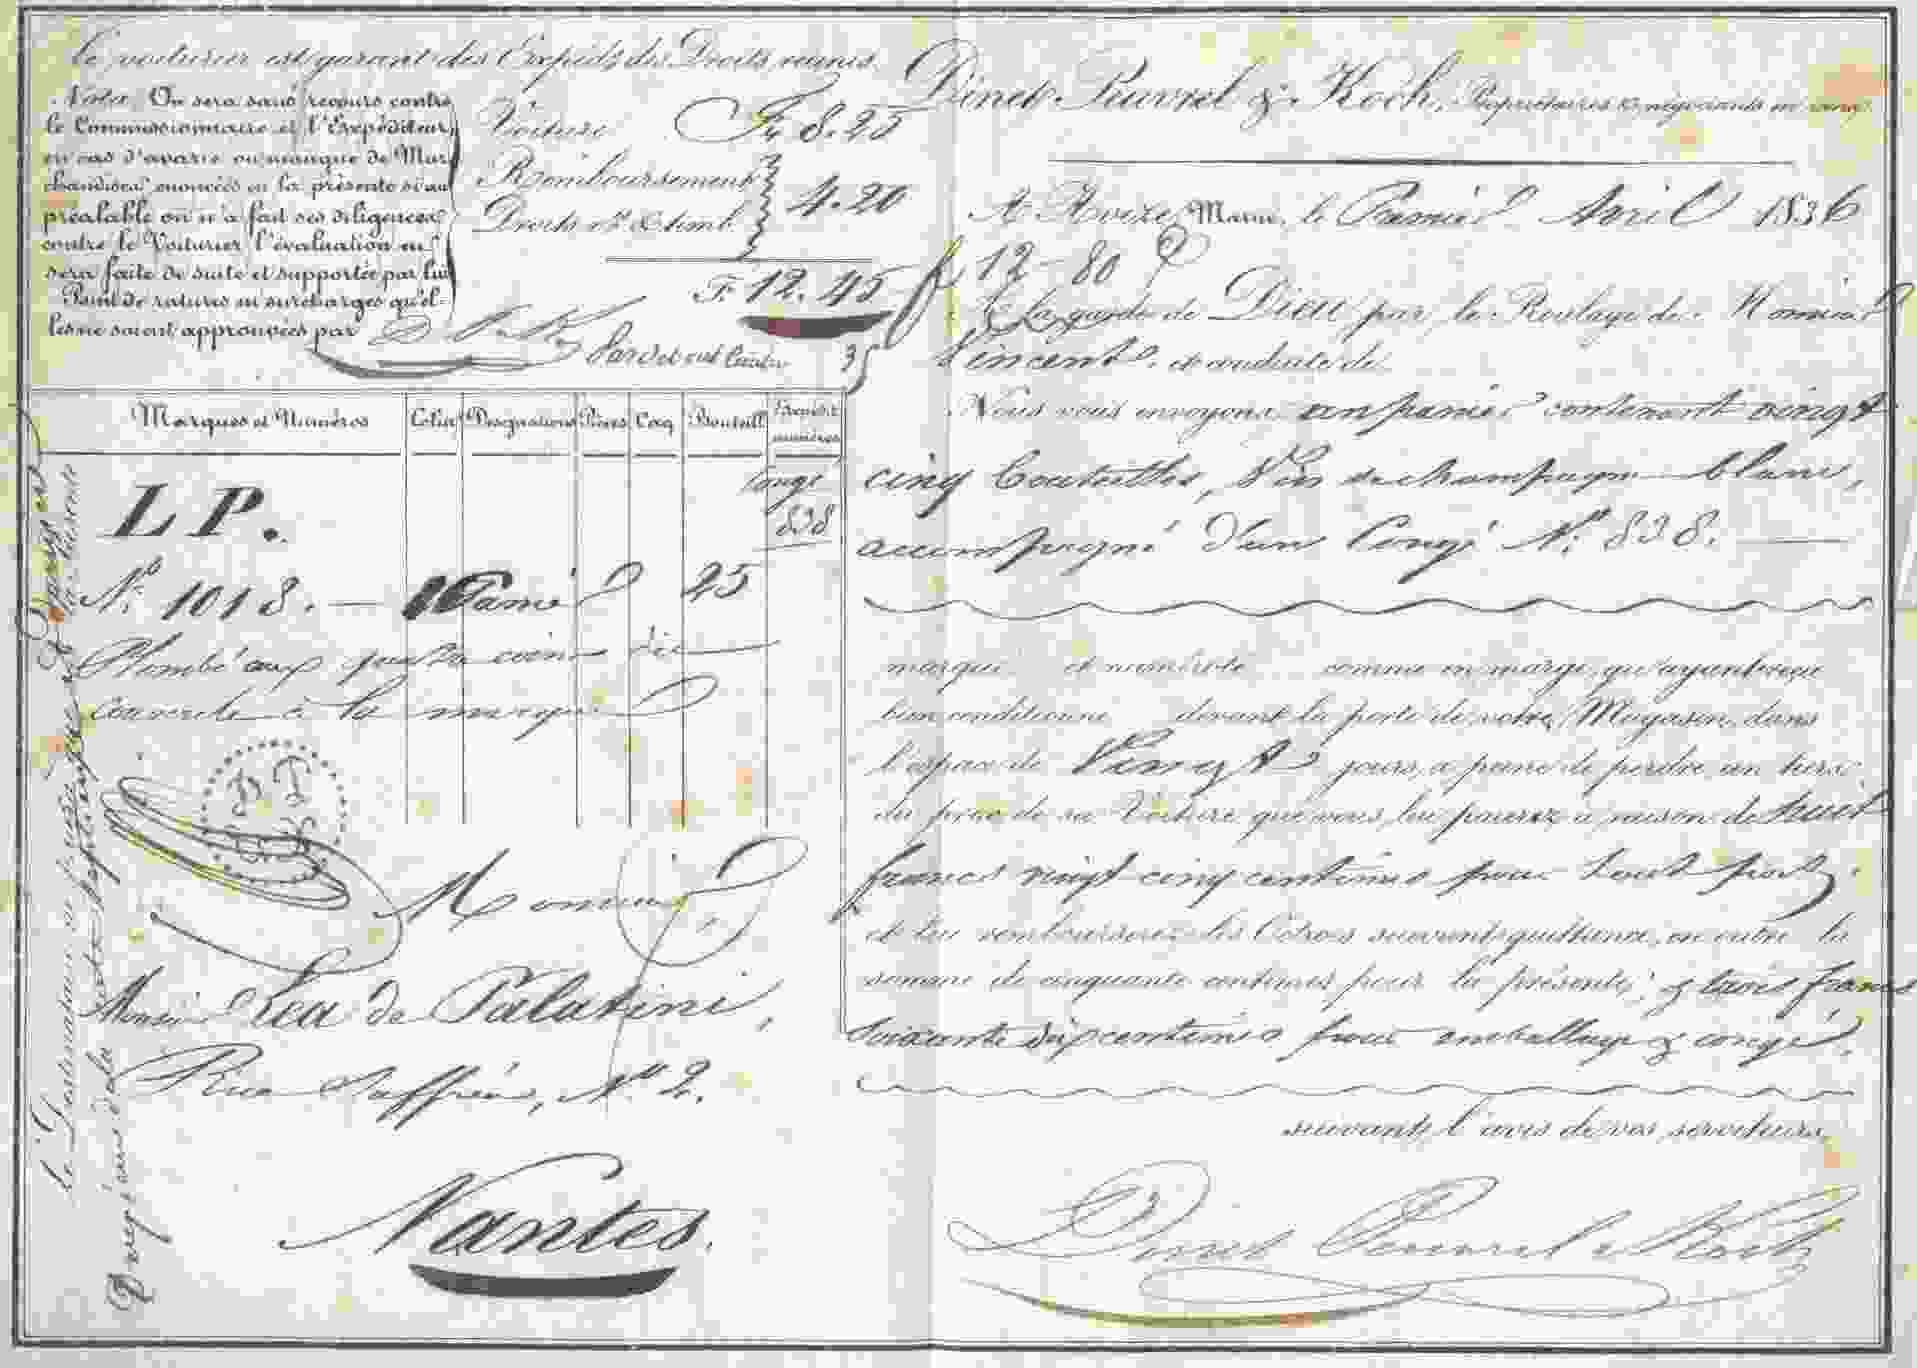 Le voiturier est garant des Expédits des Droits réunis.
Nota. On sera sans recours contre
le Commissionnaire et l'Expéditeur,
en cas d'avarie ou manque de Mar
chandises énoncées en la présente si au
préalable on n'a fait ses diligences
contre le Voiturier l'évaluation en
sera faite de suite et supportée par lui
Point de ratures ni surcharges qu'el-
les ne soient approuvées par
Voiture Fr 8.25
Remboursement
Droits et timb. 4.20
F. 12.45
35
Marques et Numéros Colis Désignations Pièces Caq Bouteill Expédit numéros
Congé
838
LP.
N.º 1018. — 1 Panier 25
Plombé aux quatre coins
à la marque
D P
& K
Monsieur
Monsieur Léa de Palatini,
Rue Saffrée, Nº 2.
Nantes.
Le Destinataire est
Dinet Peuvrel & Koch, Propriétaires & négociants en vins
A Avize, Marne, le Premier Avril 1836
12 80
A la garde de Dieu par le Roulage de Monsieur
Vincent et conduite de
Nous vous envoyons un panier contenant vingt
cinq bouteilles, Vin de champagne blanc,
accompagné d'un Congé N.º 838. —
marqué et numéroté comme en marge, qu'ayant reçu
bien conditionné devant la porte de votre Magasin, dans
l'espace de Vingt jours, à peine de perdre un tiers
du prix de sa Voiture que vous lui paierez à raison de huit
francs vingt cinq centimes pour tout
et lui rembourserez les Octrois suivant quittance, en outre la
somme de cinquante centimes pour la présente, & trois francs
soixante dix centimes pour emballage & congé.
suivant l'avis de vos serviteurs,
Dinet Peuvrel & Koch